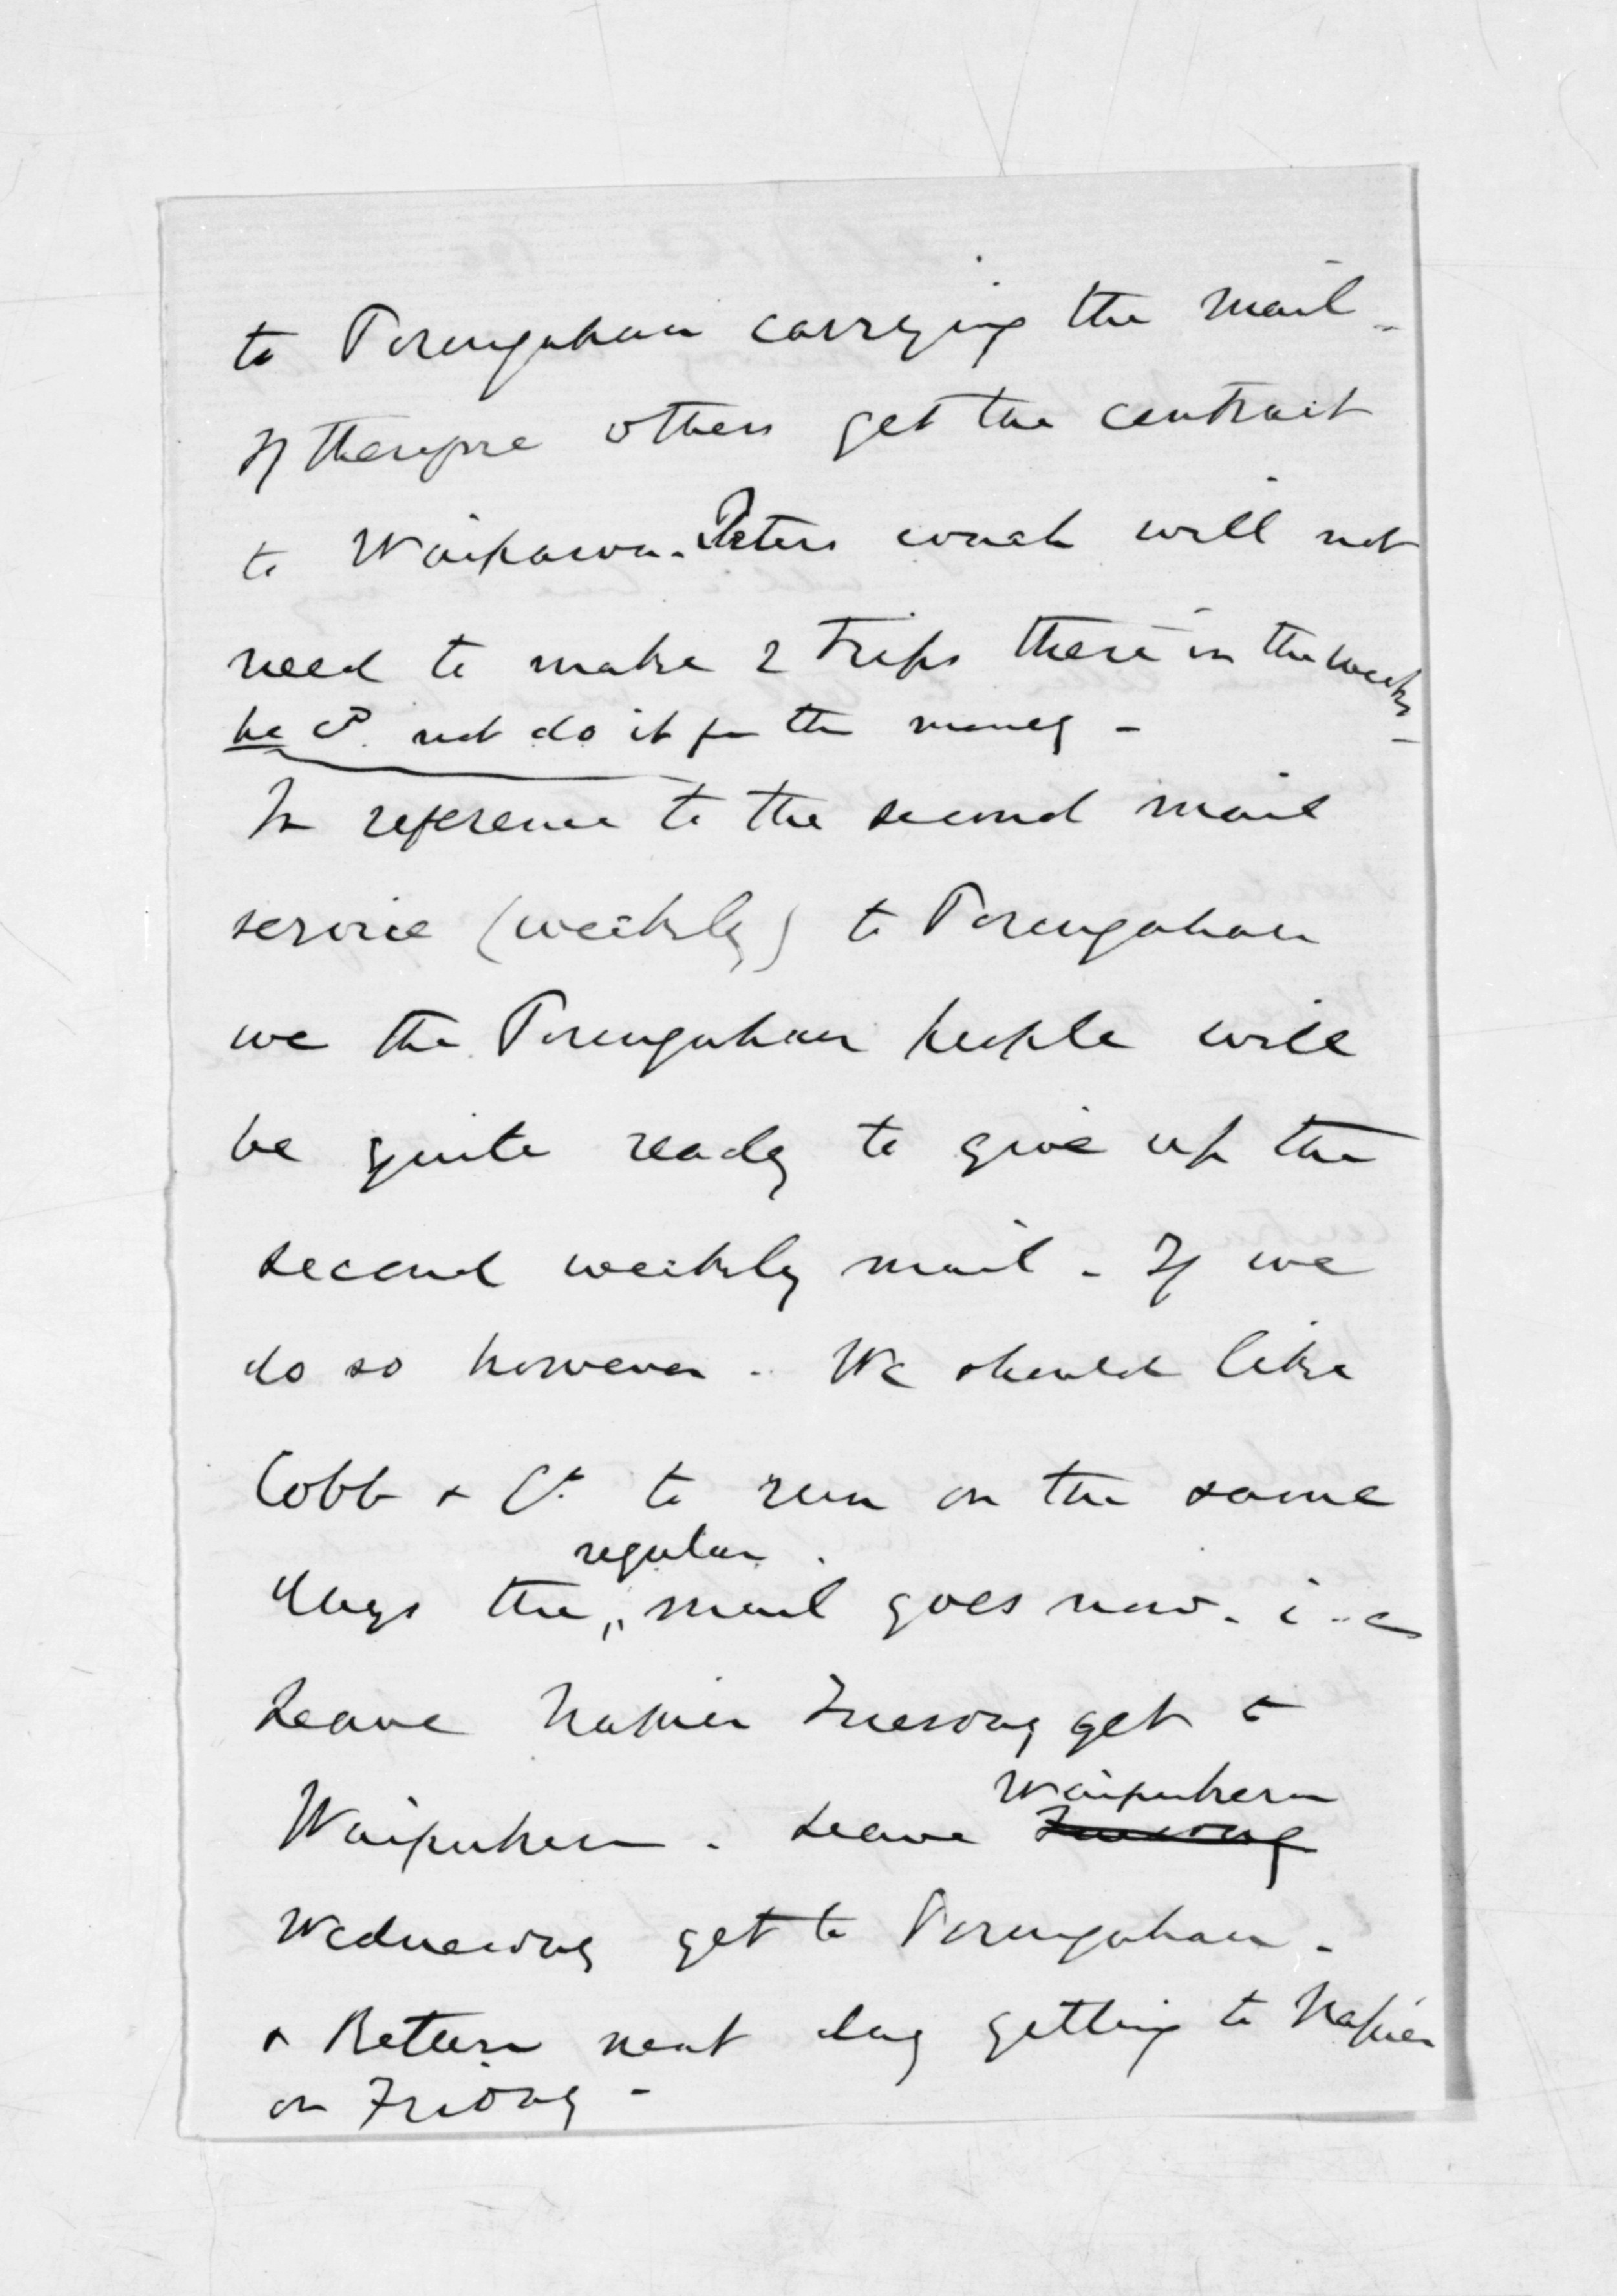 to Porangahau carrying the mail -
If therefore others get the contract
to Waipawa. Peters coach will not
need to make 2 trips there in the week -
he cd. not do it for the money -
In reference to the second mail
service (weekly) to Porangahau
we the Porangahau people will
be quite ready to give up the
second weekly mail - If we
do so however - We should like
Cobb & Co. to run on the same
regular
days the mail goes now - i.e
Leave Napier Tuesday get to
Waipukurau. Leave Tuesday
Waipukurau
Wednesday get to Porangahau -
& Return next day getting to Napier
on Friday -